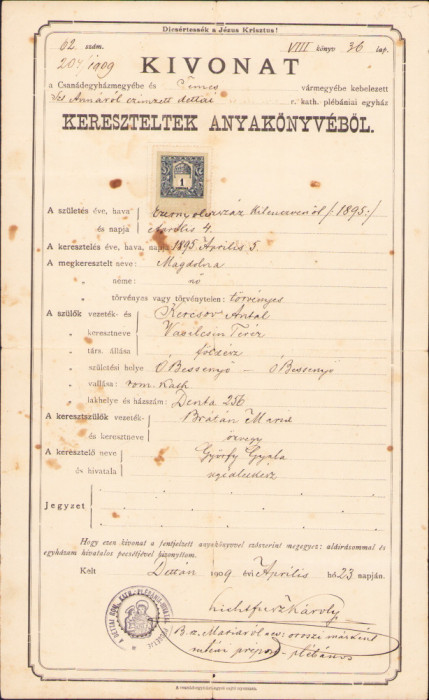 Dicsértessék a Jézus Krisztus!
62. szám. VIII könyv 36 lap.
204/1909
KIVONAT
a Csanádegyházmegyébe és Temes vármegyébe kebelezett
Szt Annáról czimzett dettai r. kath. plébániai egyház
KERESZTELTEK ANYAKÖNYVÉBŐL.
1
A születés éve, hava Ezernyolczszáz kilenczvenöt /: 1895 :/
és napja Április 4.
A keresztelés éve, hava, napja 1895 Április 5.
A megkeresztelt neve: Magdolna
" néme: nő
" törvényes vagy törvénytelen: törvényes
A szülők vezeték- és Kercsov Antal
" keresztneve Vaszilcsin Teréz
" társ. állása
" születési helye Ó Bessenyő – Ó Bessenyő
" vallása: rom. kath
" lakhelye és házszám: Denta 256
A keresztszülők vezeték- Brátán Mária
és keresztneve özvegy
A keresztelő neve Györfy Gyula
és hivatala segédlelkész
Jegyzet
Hogy ezen kivonat a fentjelzett anyakönyvvel szószerint megegyez: aláirásommal és
egyházam hivatalos pecsétjével bizonyitom.
Kelt Dettán 1909 évi Április hó 23 napján.
Károly
B. sz. Máriáról nev.
prépost-plébános